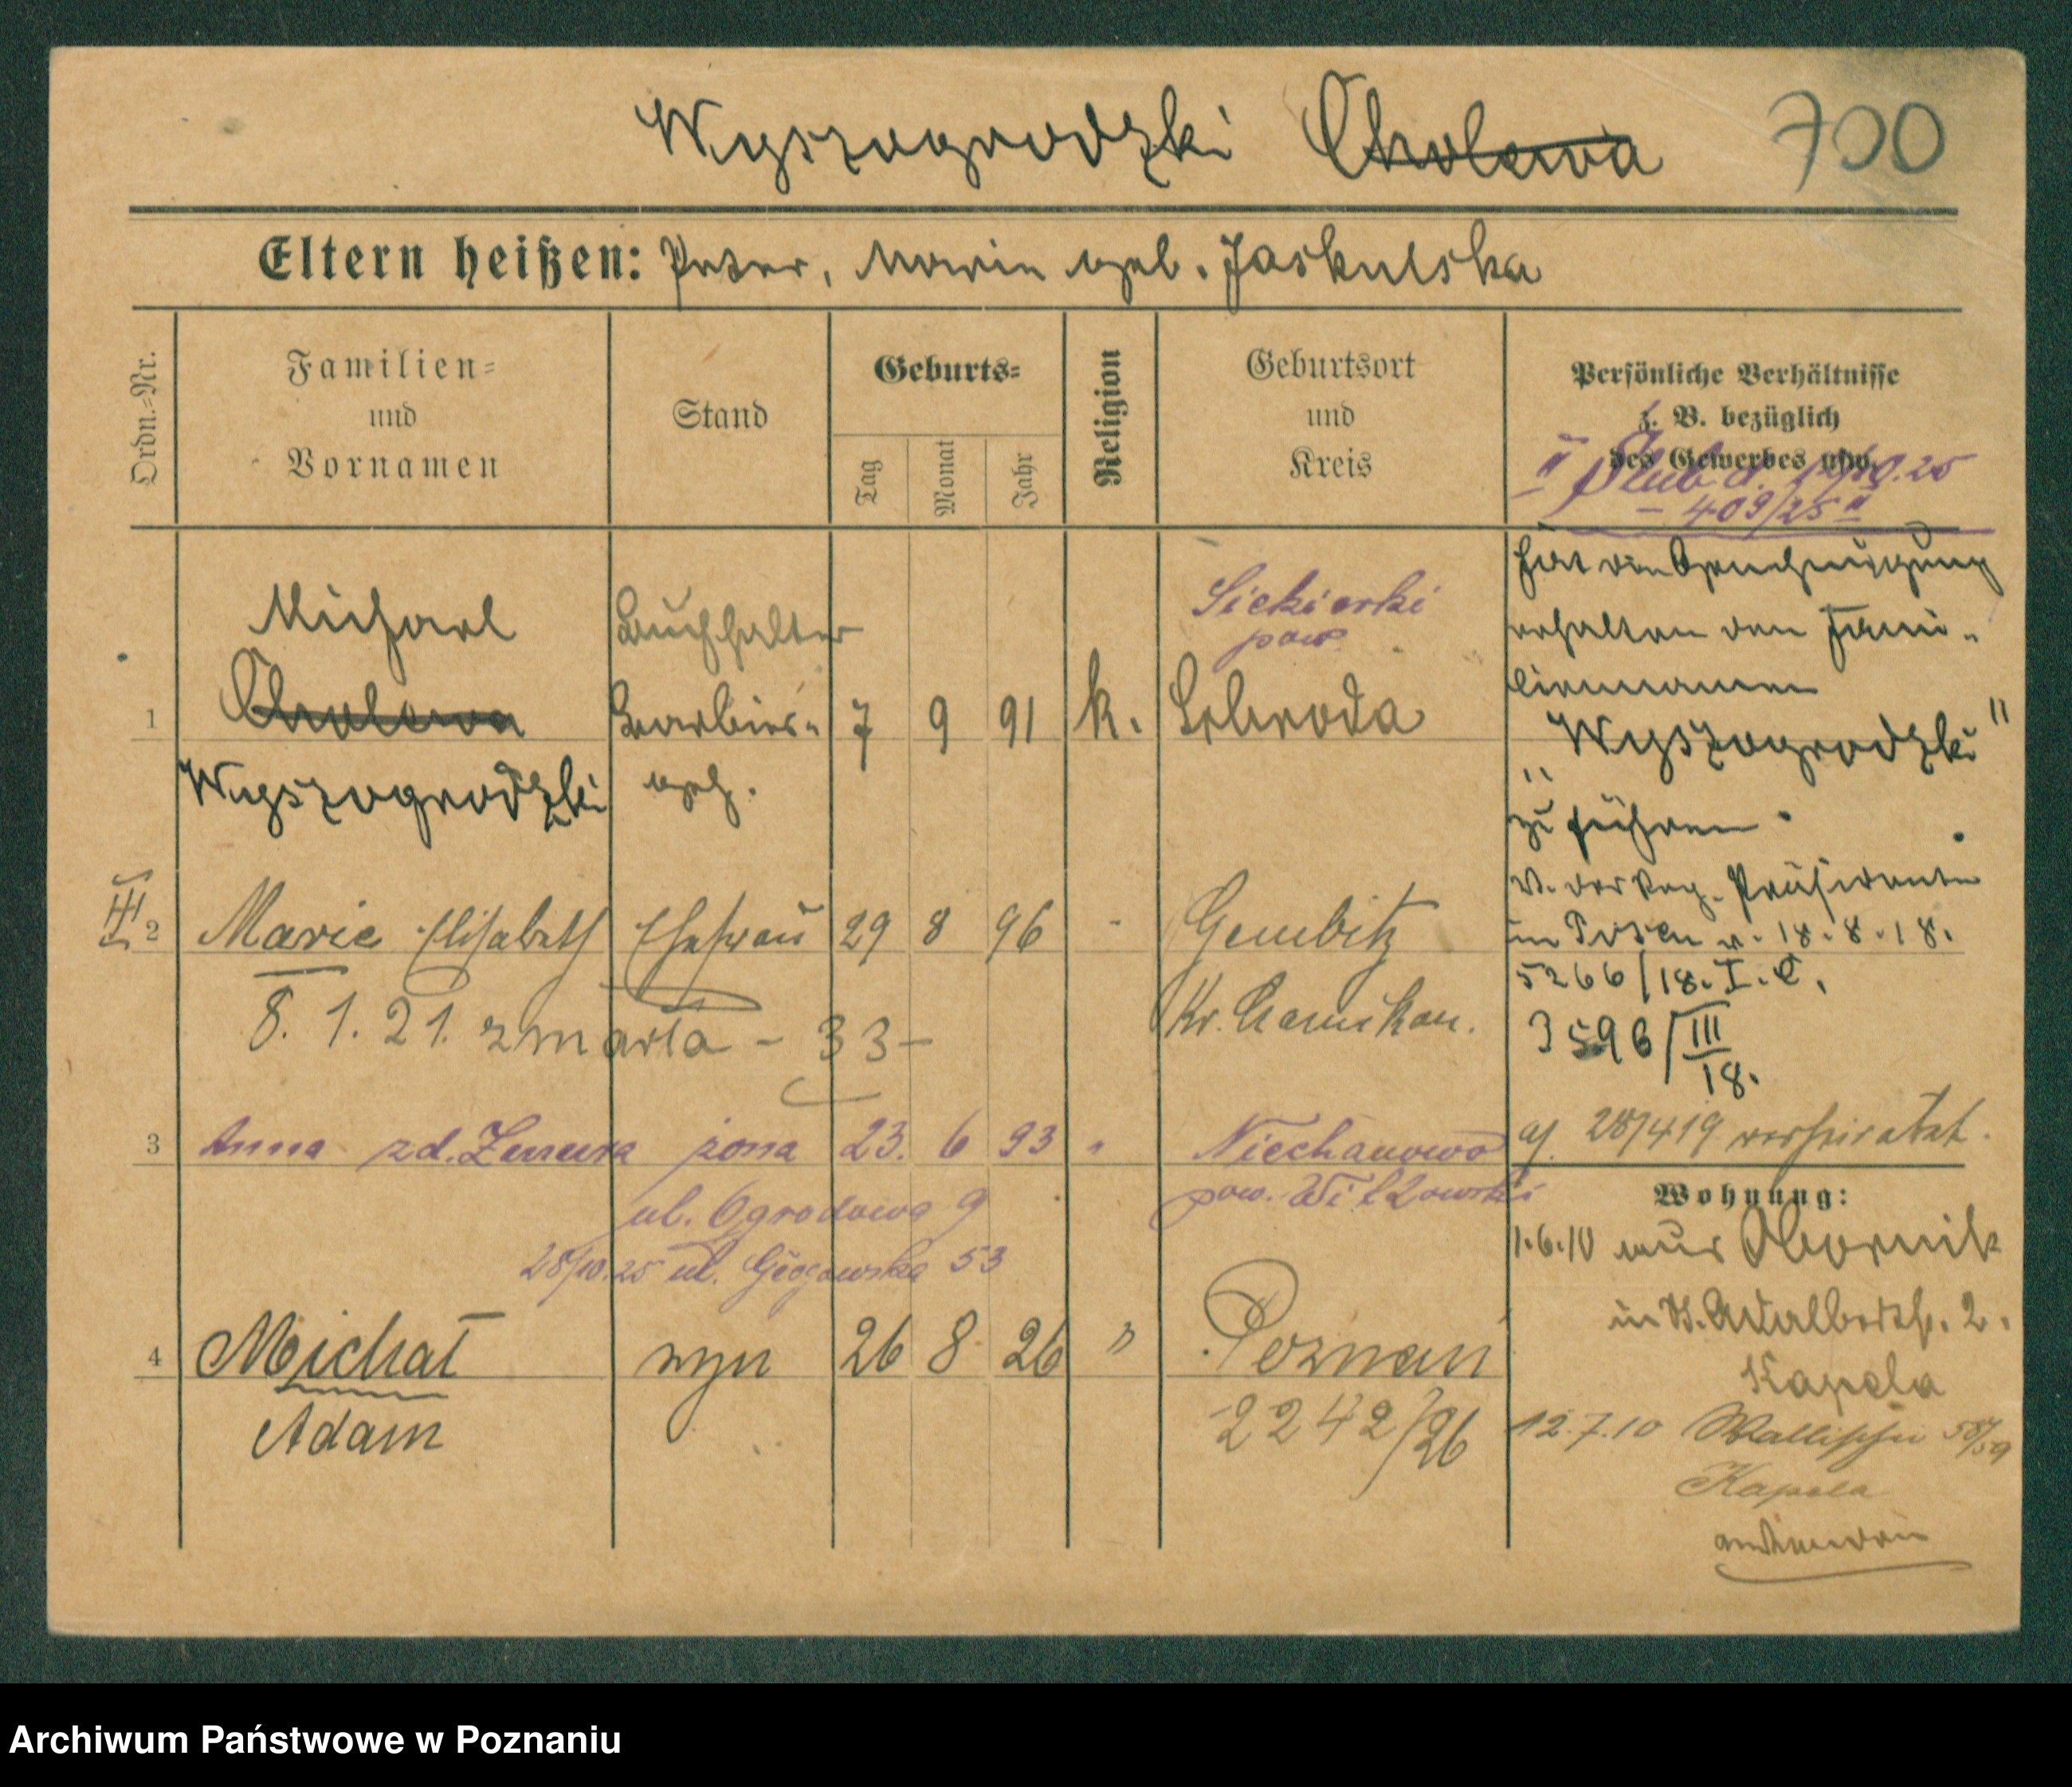 Wyszogrodzki Cholewa 700
Eltern heißen: Peter, Marie geb. Jaskulska
Ordn.=Nr.
Familien=
und
Vornamen
Stand
Geburts=
Tag
Monat
Jahr
Religion
Geburtsort
und
Kreis
Persönliche Verhältnisse
z. B. bezüglich
des Gewerbes usw.
409/25
1
Michael
Cholewa
Wyszogrodzki
Buchhalter
Barbier-
geh.
7 9 91 k.
Siekierki
pow.
Schroda
hat die Genehmigung
erhalten den Fami-
liennamen
„Wyszogrodzki"
zu führen.
V. der Reg. Präsidenten
in Posen v. 18.8.18.
5266/18. I. C.
3596/III
18.
2 Marie Elisabeth Ehefrau 29 8 96 - Gembitz
Kr. Czarnikau.
8. 1. 21. zmarła - 33 -
3 Anna zd. żona 23. 6 93 " Niechanowo
pow. Witkowski
28/419 verheiratet.
ul. Ogrodowa 9
28/10.25 ul. Głogowska 53
Wohnung:
1.6.10 aus Obornik
in St. Adalbertstr. 2.
Kapela
12.7.10 Wallischei 58/59
Kapela
4 Michał syn 26 8 26 " Poznań
Adam
2242/26
Archiwum Państwowe w Poznaniu